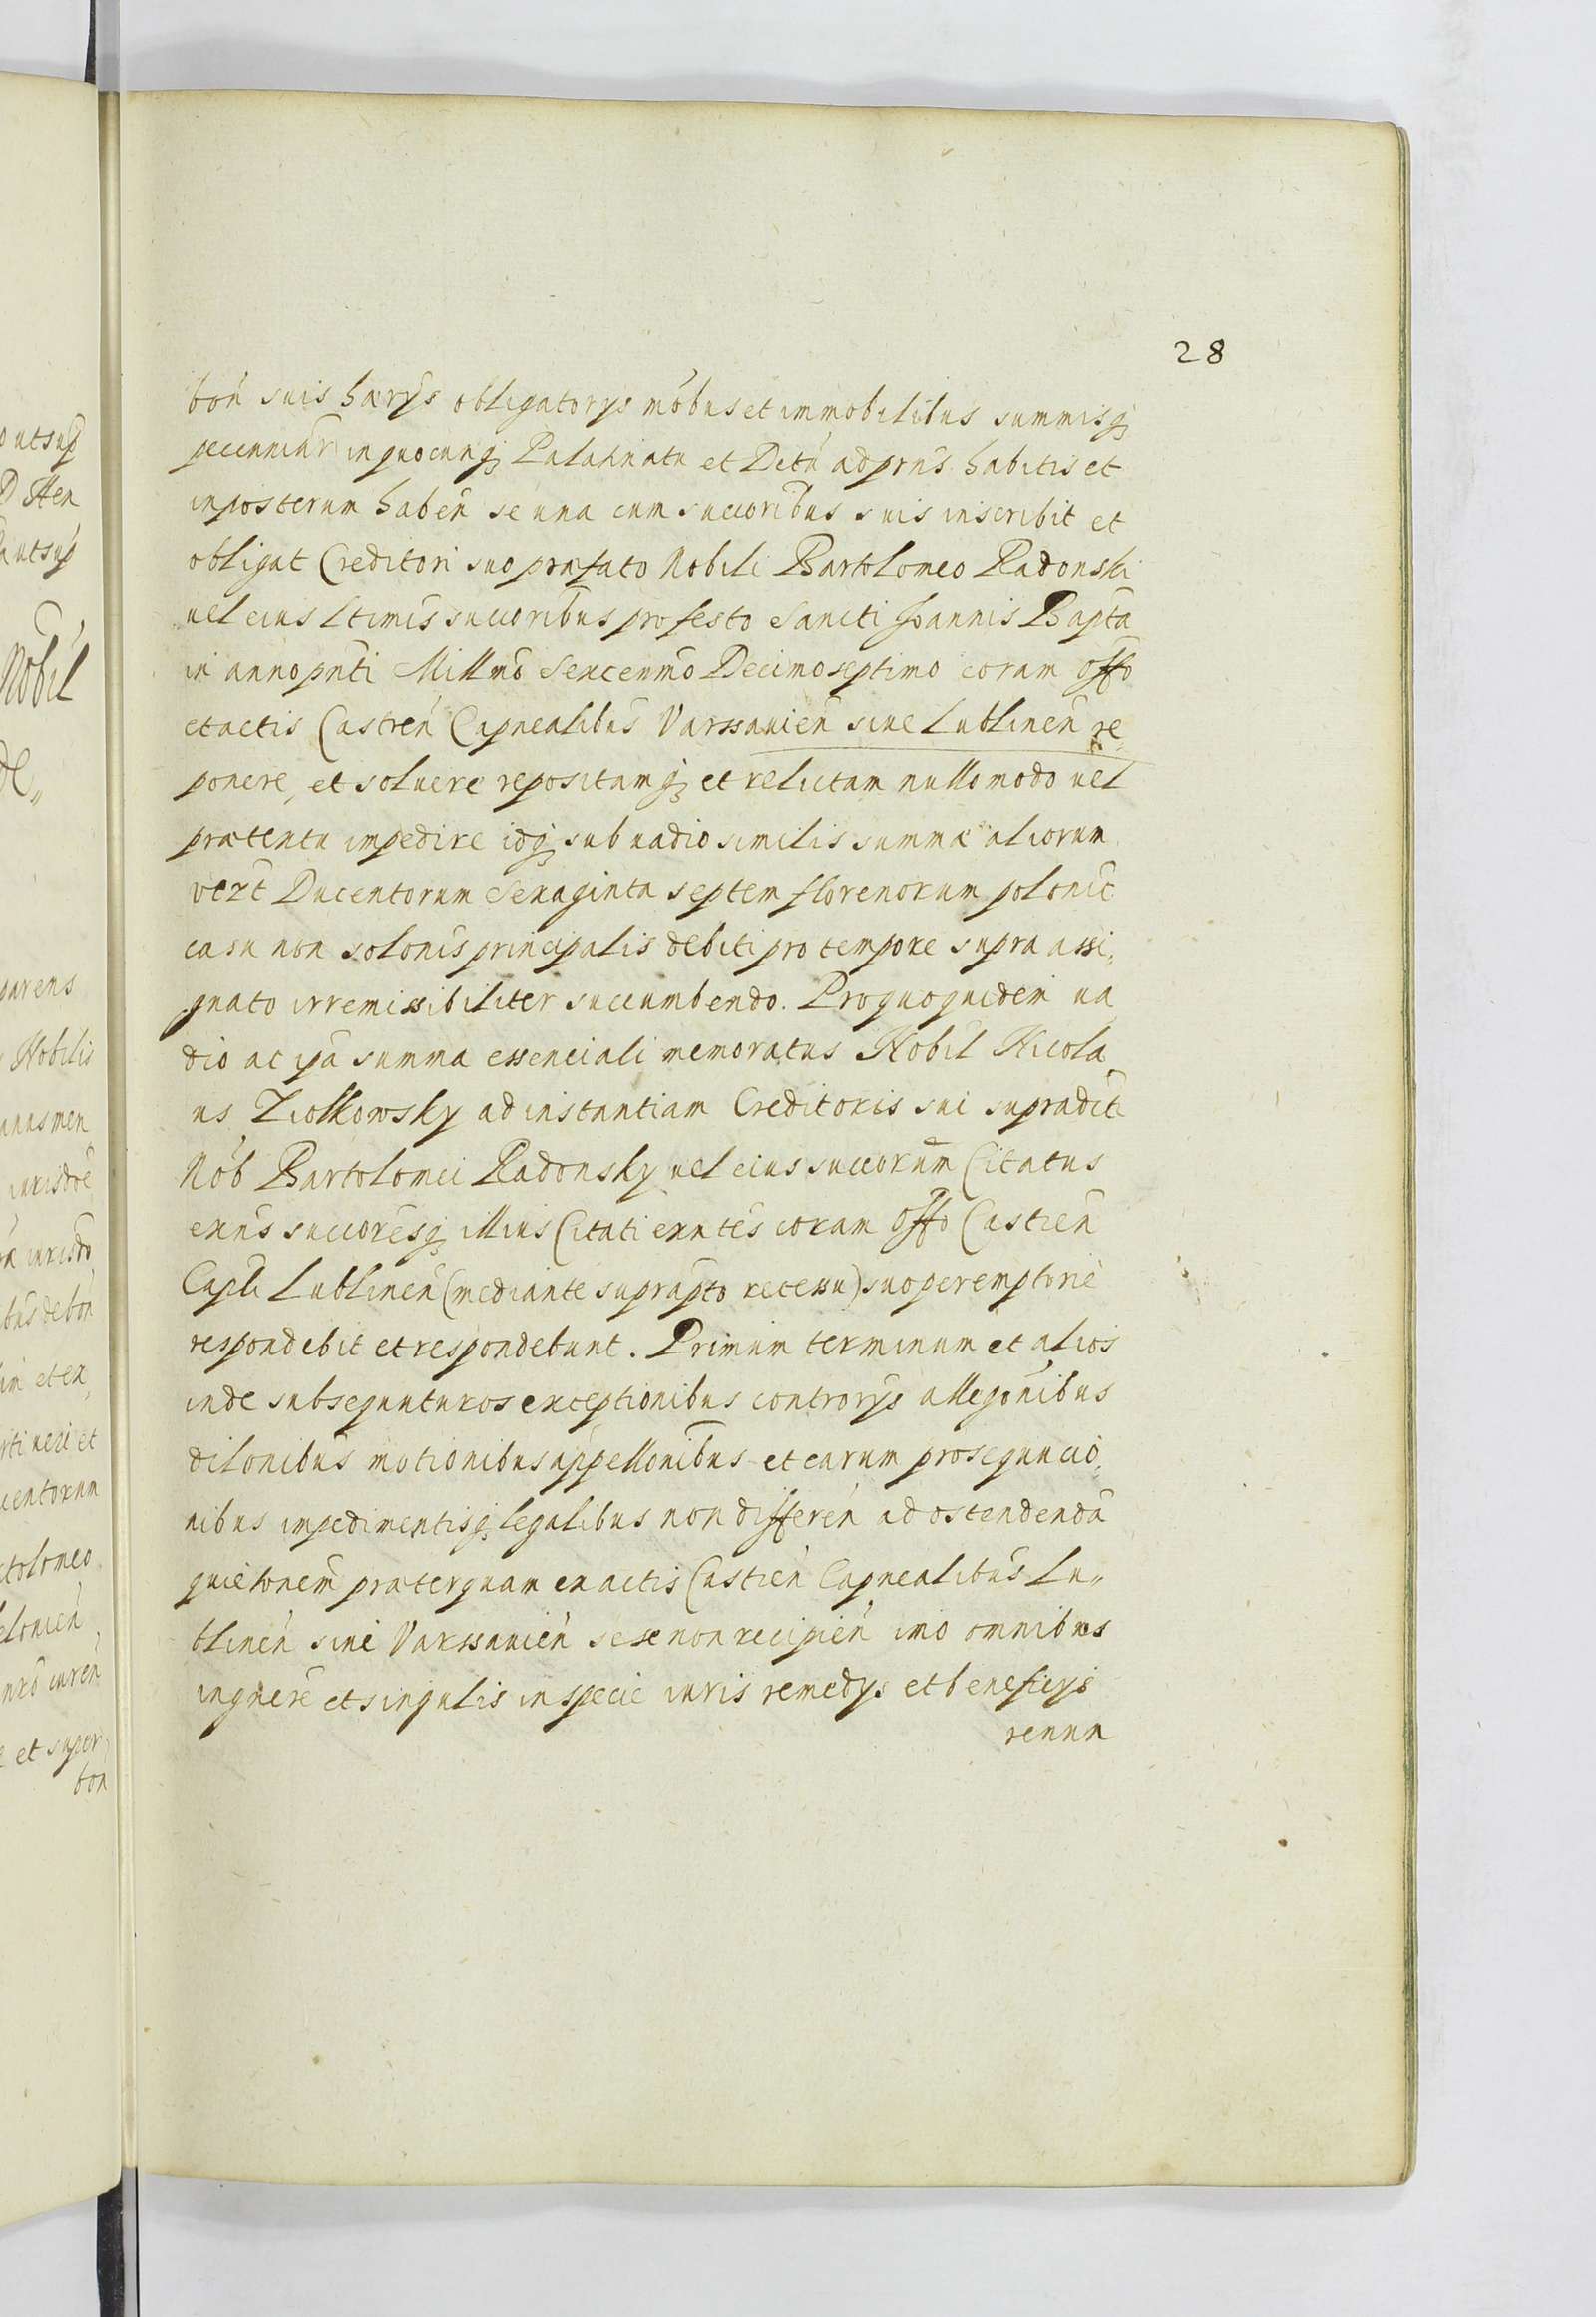 28
bon̄ suis hærys obligatorys mōbus et immobilibus summisq;
pecuniar in quocunq; Palatinatu et Dctu ad prns habitis et
in posterum haben̄ se una cum succoribus suis inscribit et
obligat Creditori suo præfato Nobili Bartolomeo Radonski
uel eius ltimis succoribus pro festo Sancti Joannis Bapta
in anno pnti Millmo Sexcenmo Decimo septimo coram Offo
et actis Castren̄ Capnealibus Varssauien̄ siue Lublinen̄ re„
ponere, et soluere repositamq; et relictam nullo modo uel
prætextu impedire idq; sub uadio similis summæ aliorum
vezt Ducentorum Sexaginta septem florenorum polonic
casu non solonis principalis debiti pro tempore supra assi„
gnato irremissibiliter succumbendo. Pro quo quidem ua„
dio ac ipa summa essenciali memoratus Nobil Nicola„
us Ziolkowsky ad instantiam Creditoris sui supradcti
Nob Bartolomei Radonsky uel eius succorum Citatus
exns succoresq; illius Citati exntes coram Offo Castren̄
Capli Lublinen̄ (mediante suprapto recessu) suo peremptorie
respondebit et respondebunt. Primum terminum et alios
inde subsequuturos exceptionibus controrys allegonibus
dilonibus motionibus appellonibus et earum prosequucio„
nibus impedimentisq; legalibus non differen̄ ad ostendenda
quietonem præterquam ex actis Castren̄ Capnealibus Lu„
blinen̄ siue Varssauien̄ sese non recipien̄ imo omnibus
in gnere et singulis in specie iuris remedys et beneficys
renun
outsup
D Hen
autsup
Nobil
de„
parens
Nobilis
anus men
iurisdoe
iurisdo
bus debon
im et ex
rti nere et
centorum
rtolomeo
olonien̄
et super
bon